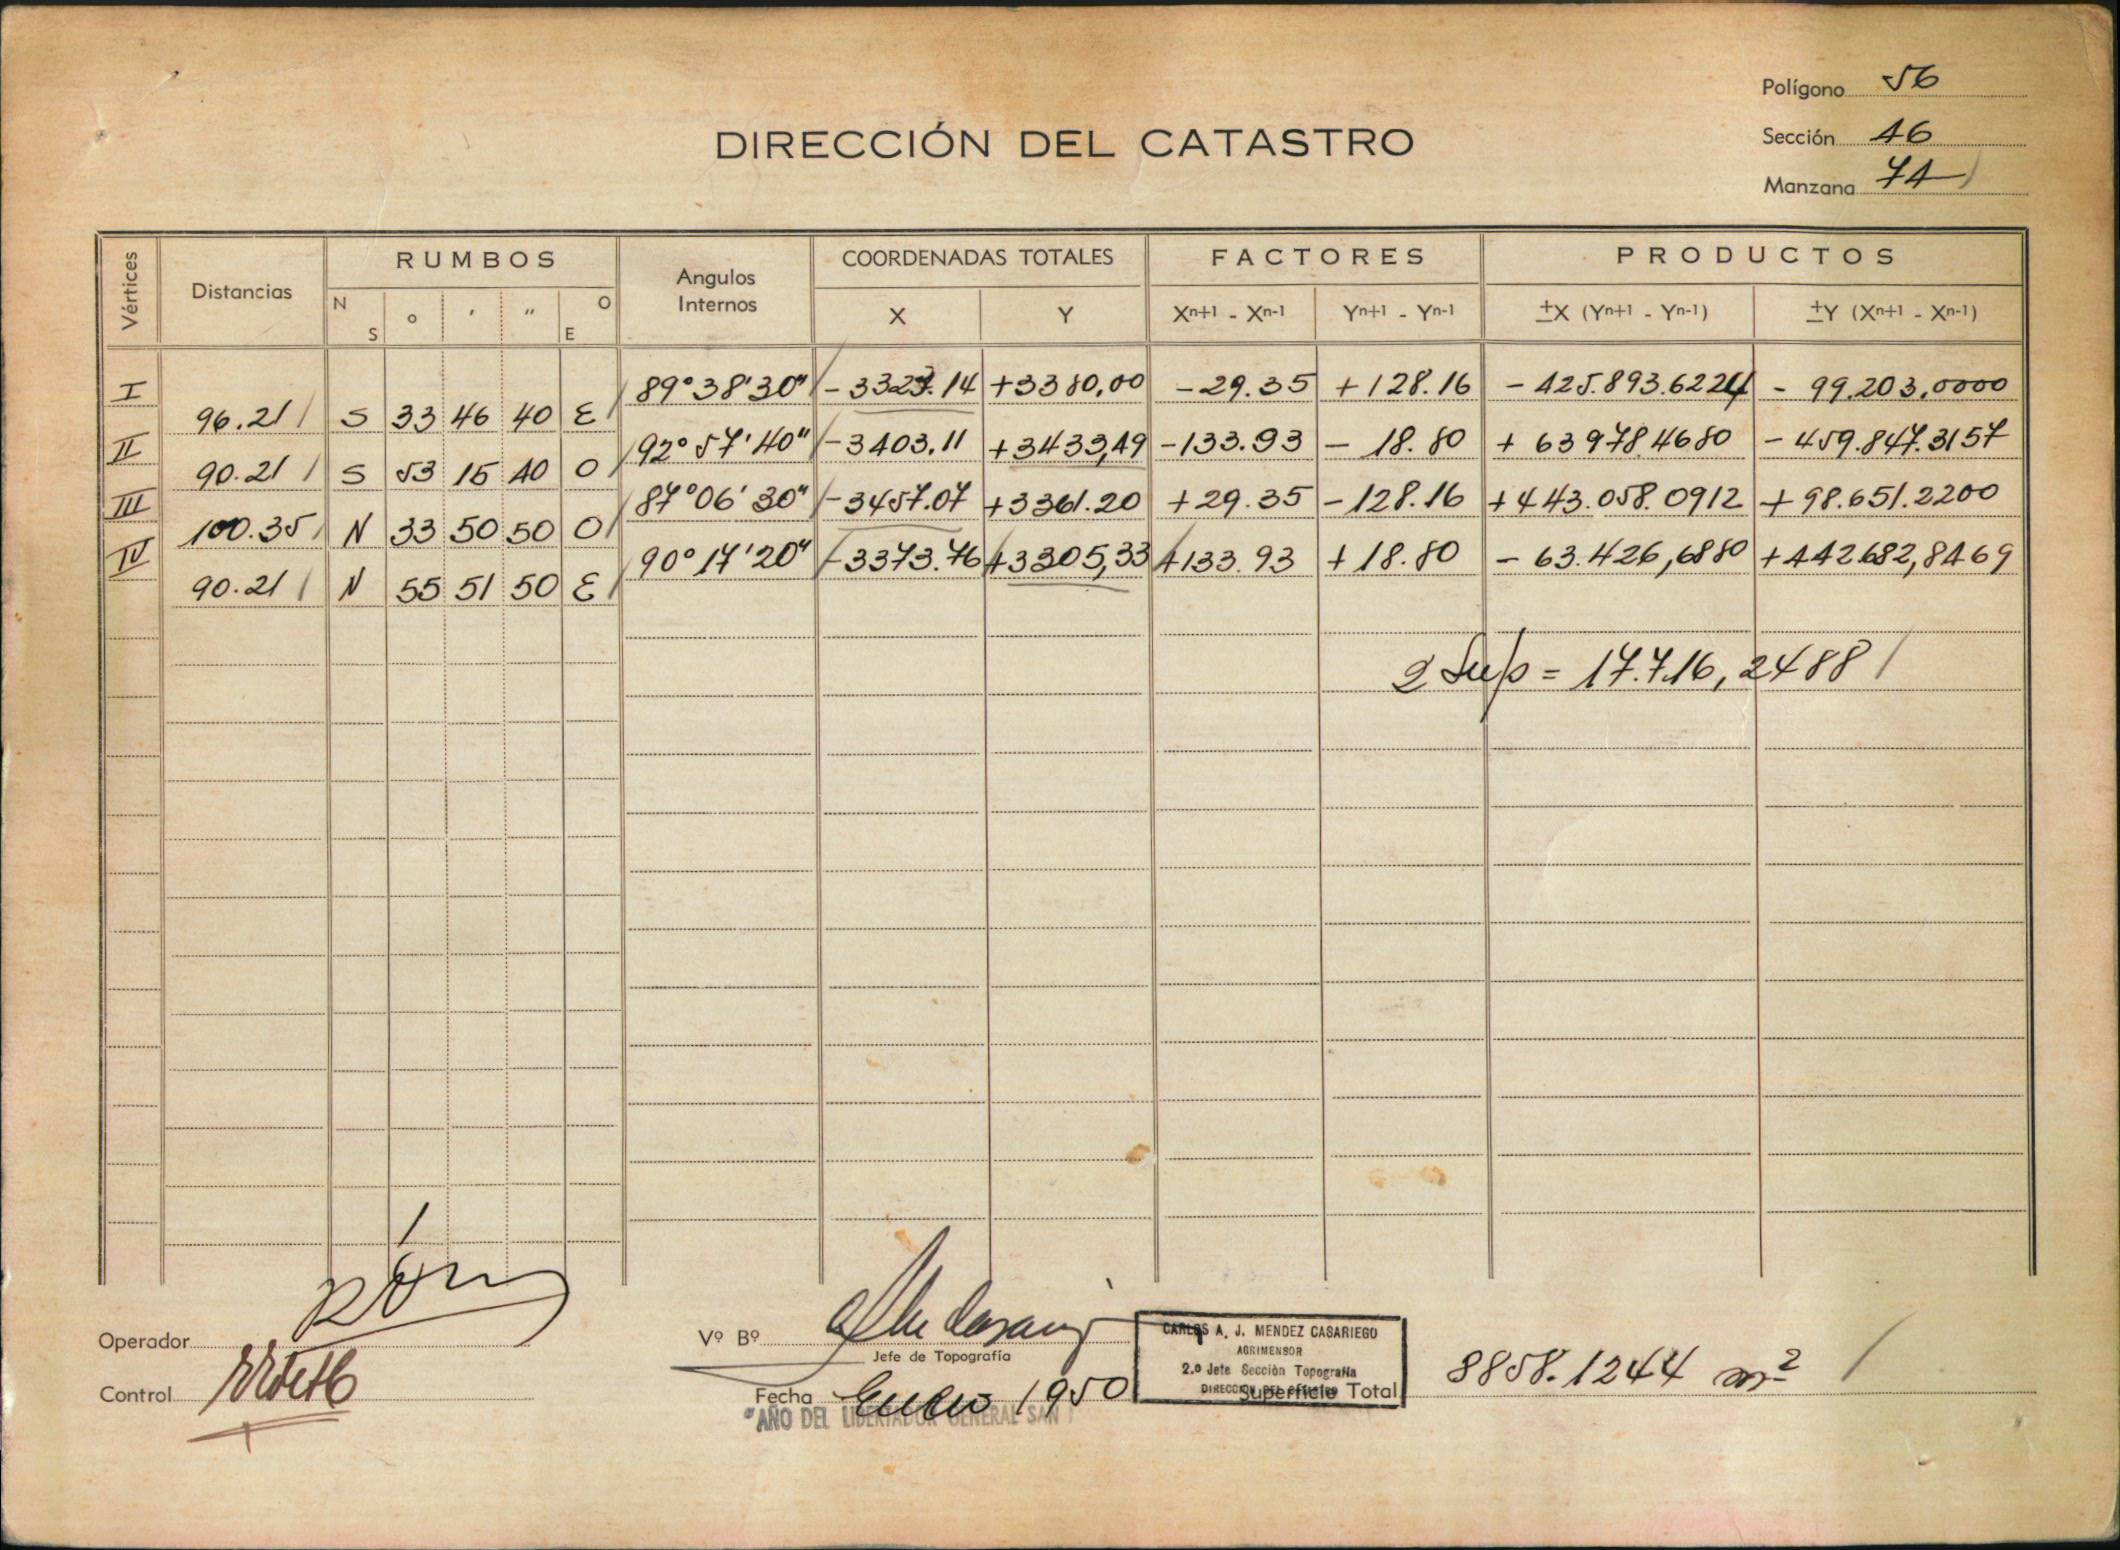 Polígono 56
DIRECCIÓN DEL CATASTRO
Sección 46
Manzana 74
Vértices Distancias RUMBOS Angulos Internos COORDENADAS TOTALES FACTORES PRODUCTOS
N S ° ' " O E X Y Xn+1 - Xn-1 Yn+1 - Yn-1 ±X (Yn+1 - Yn-1) ±Y (Xn+1 - Xn-1)
I 89°38'30" -3323.14 +3380,00 -29.35 +128.16 -425.893.6224 -99.203,0000
96.21 S 33 46 40 E
II 92°57'40" -3403.11 +3433,49 -133.93 -18.80 +63978.4680 -459.847.3157
90.21 S 53 15 40 O
III 87°06'30" -3457.07 +3361.20 +29.35 -128.16 +443.058.0912 +98.651.2200
100.35 N 33 50 50 O
IV 90°17'20" -3373.76 +3305,33 +133.93 +18.80 -63.426,6880 +442682,8469
90.21 N 55 51 50 E
2 Sup = 17.716,2488
Operador
Vº Bº
Jefe de Topografía
CARLOS A. J. MENDEZ CASARIEGO
AGRIMENSOR
2.º Jefe Sección Topografía
Control
Fecha Enero 1950
Superficie Total 8858.1244 m²
"AÑO DEL LIBERTADOR GENERAL SAN